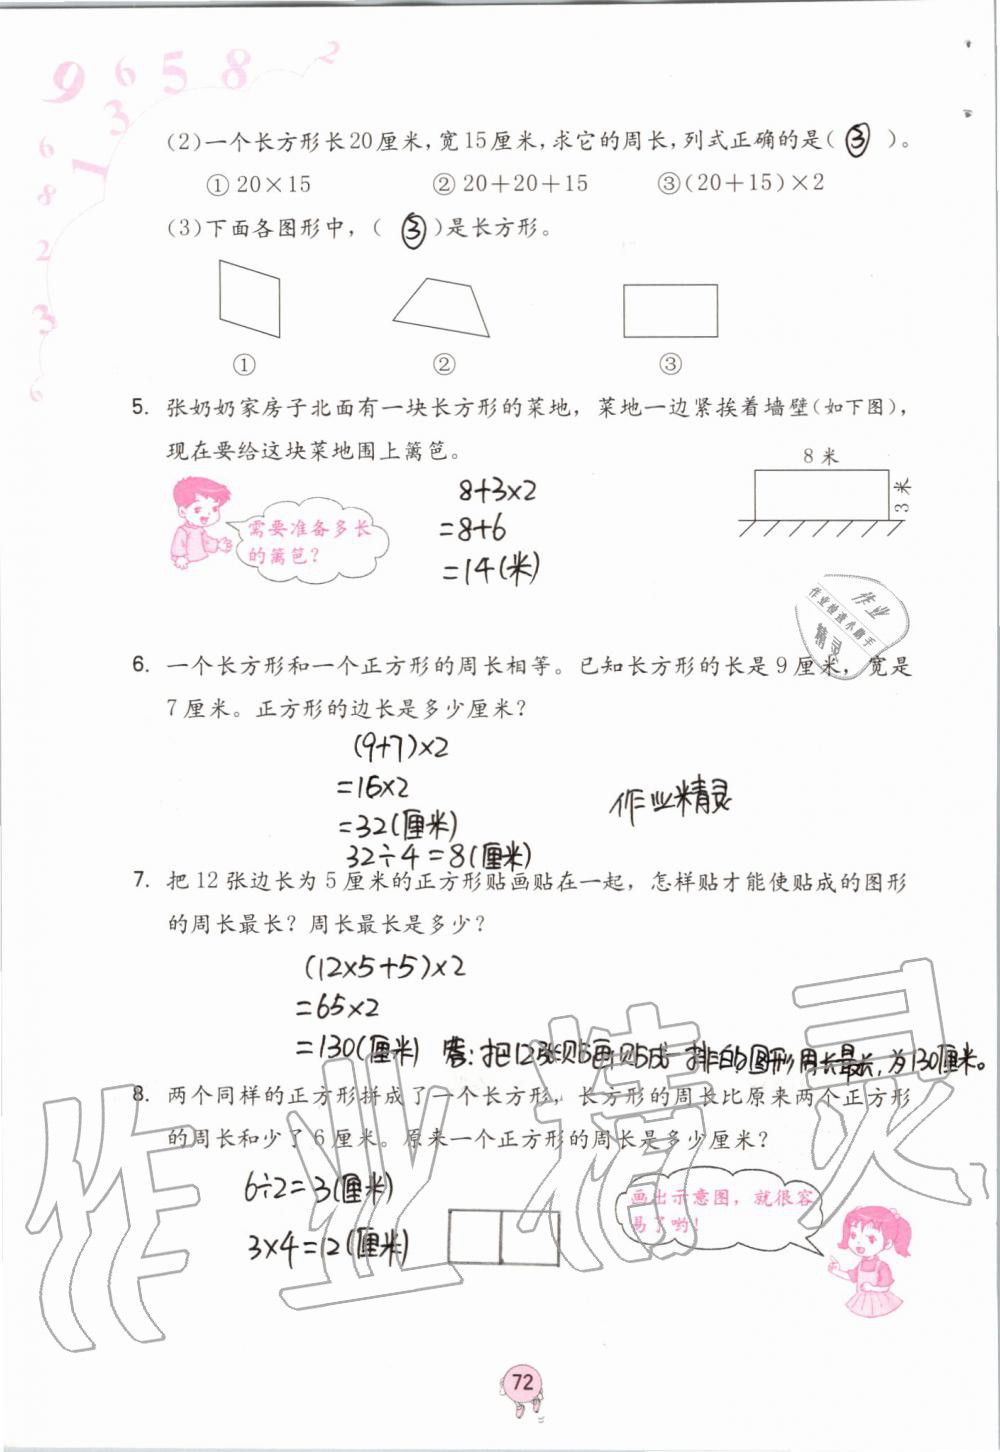 9 6 5 8 2
3
1
6
8
2
3
6
(2)一个长方形长20厘米,宽15厘米,求它的周长,列式正确的是( ③ )。
① 20×15 ② 20+20+15 ③(20+15)×2
(3)下面各图形中,( ③ )是长方形。
① ② ③
5. 张奶奶家房子北面有一块长方形的菜地,菜地一边紧挨着墙壁(如下图),
现在要给这块菜地围上篱笆。
8米
3米
需要准备多长
的篱笆?
8+3×2
=8+6
=14(米)
作业
作业检查小助手
精灵
6. 一个长方形和一个正方形的周长相等。已知长方形的长是9厘米,宽是
7厘米。正方形的边长是多少厘米?
(9+7)×2
=16×2
=32(厘米)
32÷4=8(厘米)
作业精灵
7. 把12张边长为5厘米的正方形贴画贴在一起,怎样贴才能使贴成的图形
的周长最长?周长最长是多少?
(12×5+5)×2
=65×2
=130(厘米) 答:把12张贴画贴成一排的图形周长最长,为130厘米。
8. 两个同样的正方形拼成了一个长方形,长方形的周长比原来两个正方形
的周长和少了6厘米。原来一个正方形的周长是多少厘米?
6÷2=3(厘米)
3×4=12(厘米)
画出示意图,就很容
易了哟!
作业精灵
72